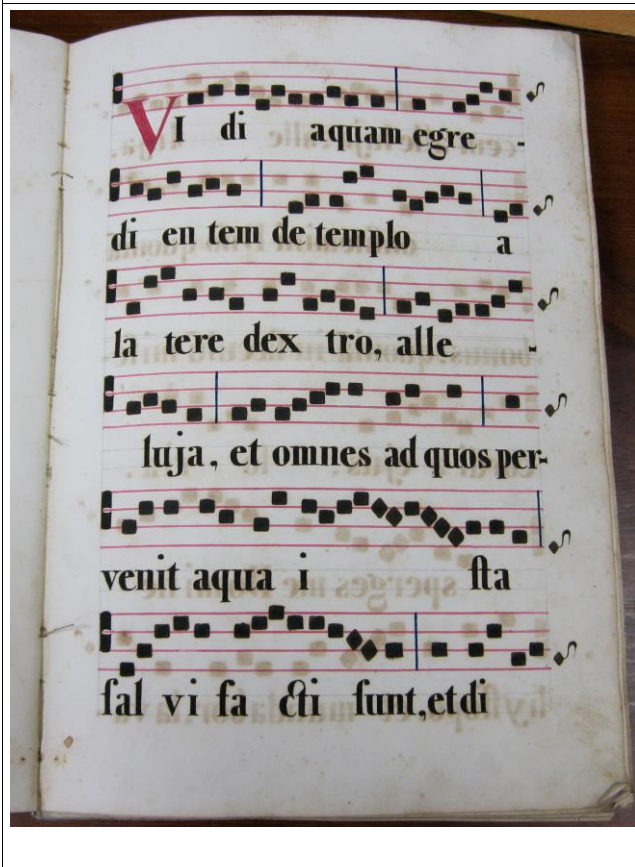 VI di aquam egre -
di en tem de templo a
la tere dex tro, alle -
luja, et omnes ad quos per-
venit aqua i ſta
ſal vi fa cti ſunt, et di